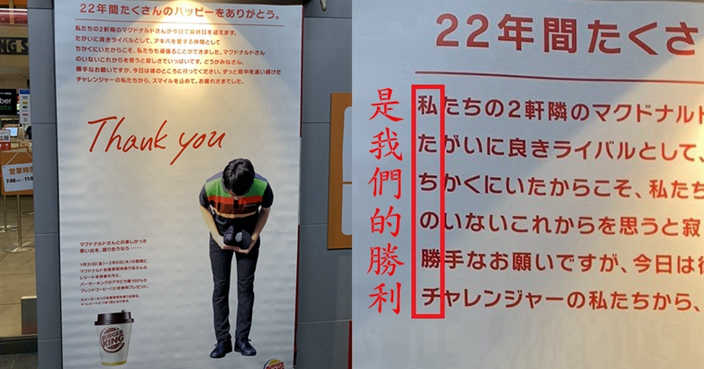 22年間たくさんのハッピーをありがとう。
私たちの2軒隣のマクドナルドさんが今日で最終日を迎えます。
たがいに良きライバルとして、アキバを愛する仲間として
ちかくにいたからこそ、私たちも頑張ることができました。マクドナルドさん
のいないこれからを思うと寂しさでいっぱいです。どうかみなさん、
勝手なお願いですが、今日は彼のところに行ってください。ずっと背中を追い続けた
チャレンジャーの私たちから、スマイルを込めて。お疲れさまでした。
Thank you
マクドナルドさんとの楽しかった
思い出を、語り合うなら
BURGER
KING
営業時間
22年間たくさ
私たちの2軒隣のマクドナルド
たがいに良きライバルとして、
ちかくにいたからこそ、私たち
のいないこれからを思うと寂
勝手なお願いですが、今日は彼
チャレンジャーの私たちから、
是我們的勝利